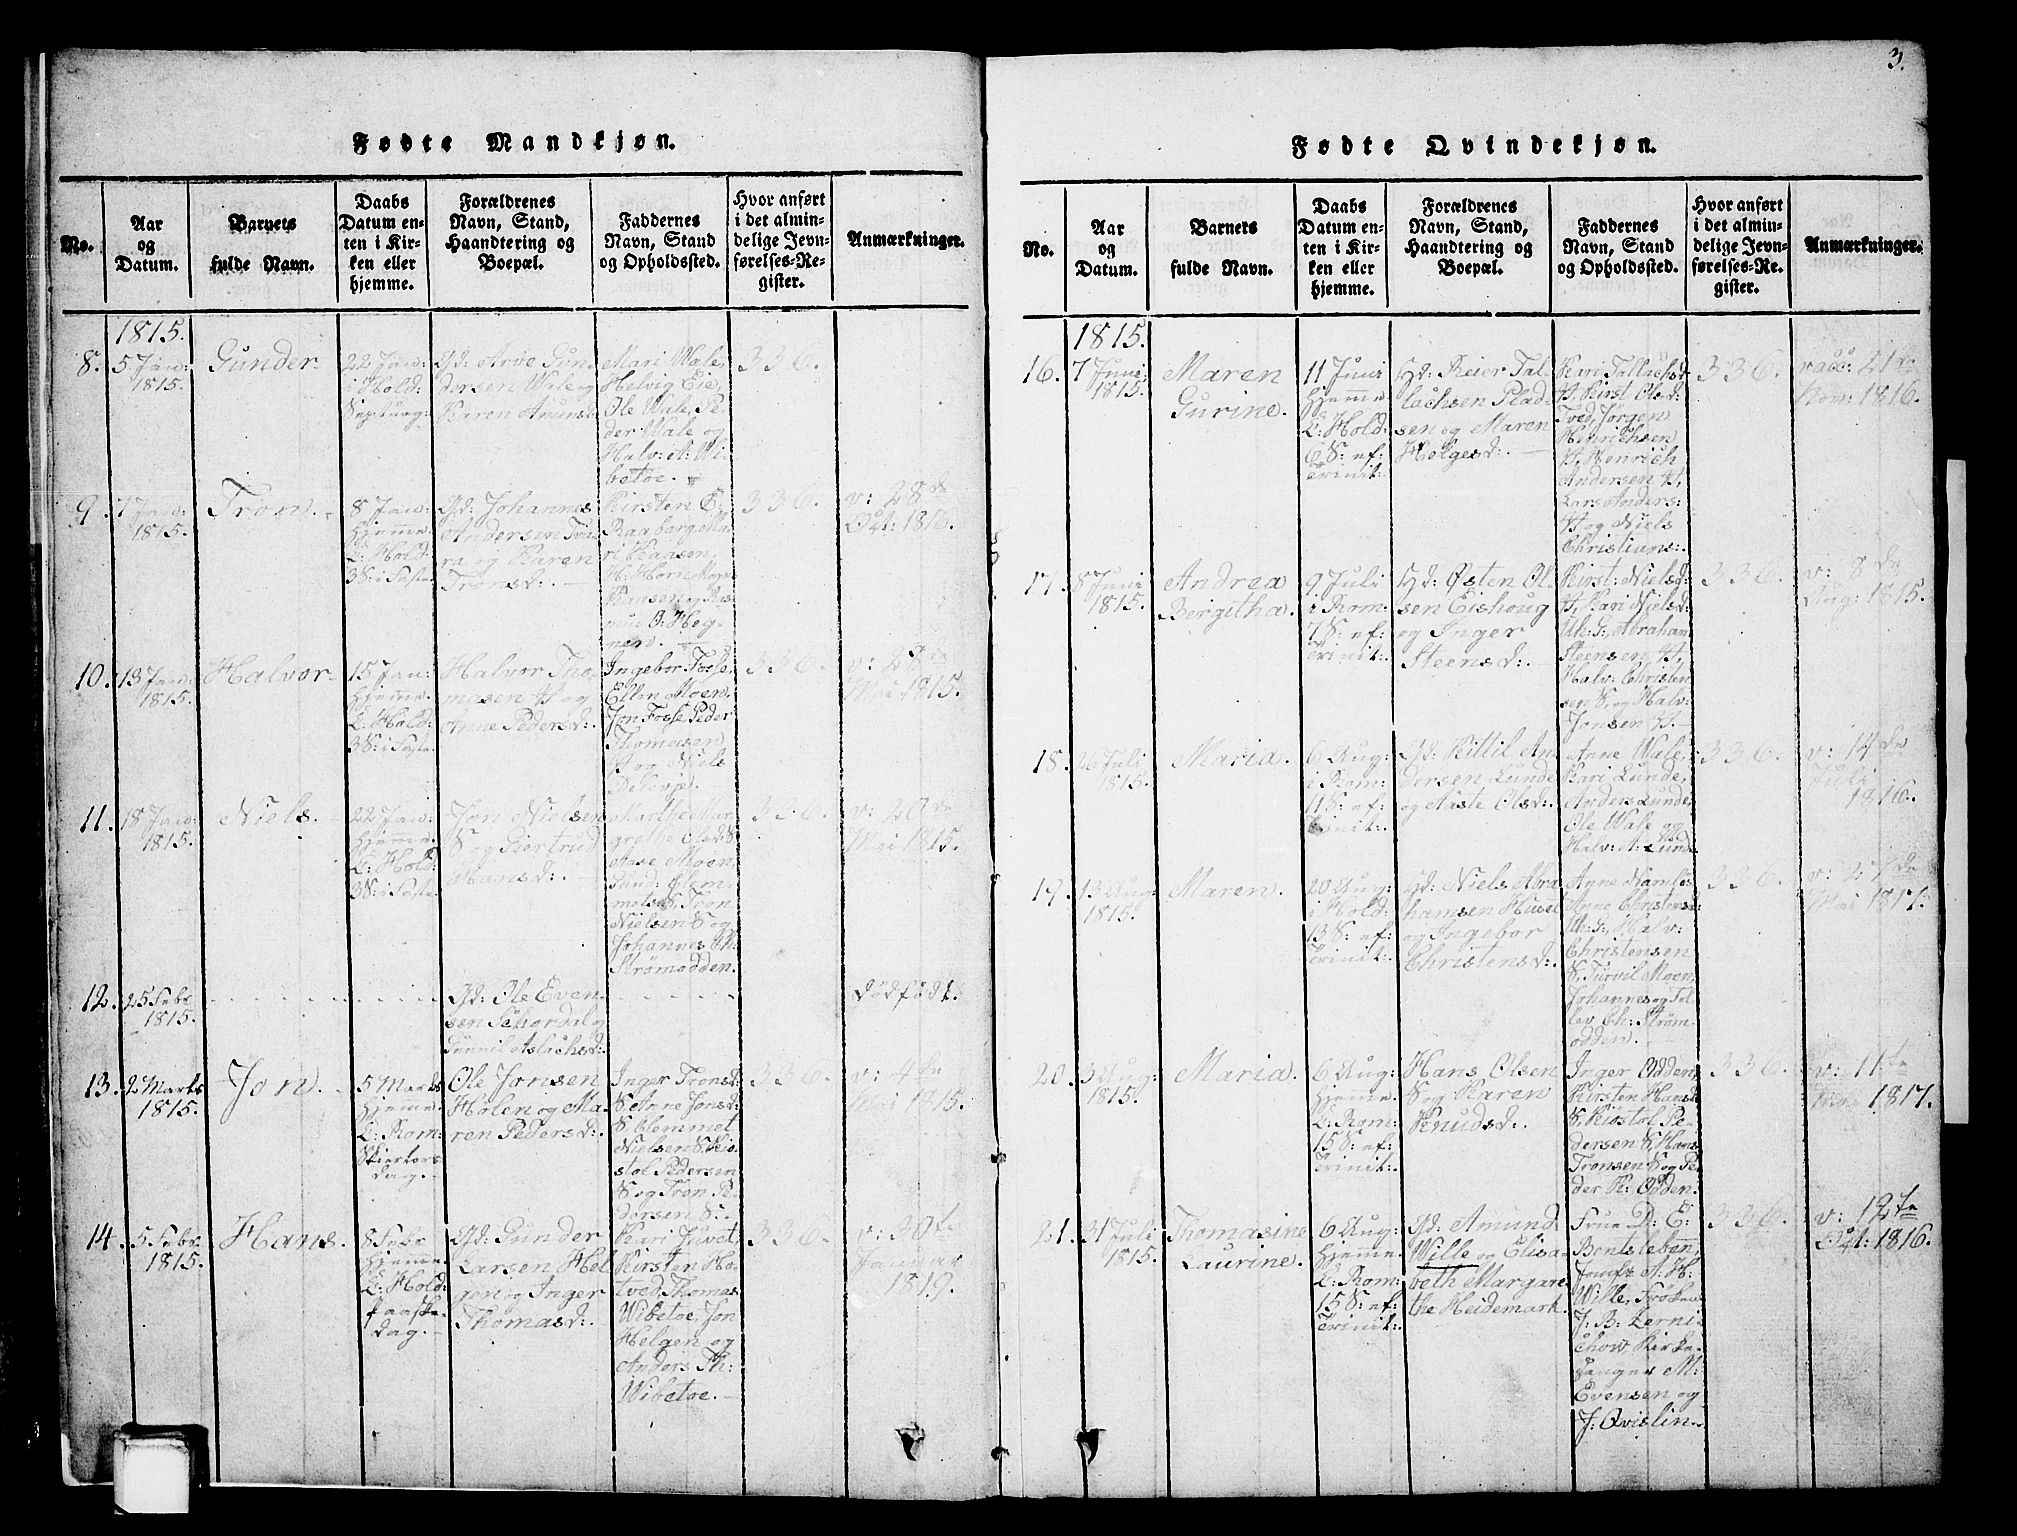 3.
Fødte Mandkjøn.
No.
Aar
og
Datum.
Barnets
fulde Navn.
Daabs
Datum en-
ten i Kir-
ken eller
hjemme.
Forældrenes
Navn, Stand,
Haandtering og
Boepæl.
Faddernes
Navn, Stand
og Opholdssted.
Hvor anført
i det almin-
delige Jevn-
førelses-Re-
gister.
Anmærkninger.
1815.
8.
5 Jan:
1815.
Gunder
22 Jan:
i Hold:
Septuag:
Gd: Arve Gun
dersen Wale og
Karen Amunsd:
Mari Wale,
Helvig Eie,
Ole Wale, Pe-
der Wale og
Halv: A: Wi-
betoe.
336.
9.
7 Jan:
1815.
Tron.
8 Jan:
hjemme.
C: Hold:
3 S: i Faste
Gd: Johannes
Andersen
ra og Karen
Tronsd:.
Kirsten E:
Raaberg, Ma-
ri Kaasen,
Kaasen og Ras-
mus O: Heg-
nen.
336.
v: 28de
Oct: 1816.
10.
13 Jan:
1815.
Halvor
15 Jan:
hjemme.
C: Hold:
3 S: i Faste
Halvor Tho
masen H og
Anne Pedersd:
Ingebor Fosse,
Ellen Moen,
Jon Fosse, Peder
Thomesen
H og Niels
336.
v: 28de
Mai 1815.
11.
18 Jan:
1815.
Niels.
22 Jan:
hjemme.
C: Hold:
3 S: i Faste
Jon Nielsen
S og Giertrud
Hansd:.
Marthe Mar-
grethe Olsd: S
Aase Moen,
Gund: Clem-
metsen, Tron
Nielsen S og
Johannes Ch:
Strømodden.
336.
v: 20de
Mai 1815.
12.
25 Febr
1815.
Gd: Ole Even
sen Schordal og
Gunnil Aslachsd:.
dødfødt.
13.
2 Marts
1815.
Jon.
5 Marts
hjemme.
C: Rom:
Skiertors
dag.
Ole Jonsen
Holen og Ma-
ren Pedersd:.
Inger Tronsd:
S. Anne Jonsd:
S. Clemmet
Nielsen S. Kis-
stol Pedersen
S og Tron Pe-
dersen S:
336.
v: 4de
Mai 1815.
14.
5 Febr
1815.
Hans.
8 Febr
hjemme
C: Hold:
Paaske-
dag.
Gd: Gunder
Larsen Hel
gen og Inger
Thomasd:.
Kari Juvet
Kirsten Ho-
tved, Thomas
Wibetoe, Jon
Helgen og
Anders Th:
Wibetoe.
336.
v: 20de
Januar
1819.
Fødte Qvindekjøn.
No.
Aar
og
Datum.
Barnets
fulde Navn.
Daabs
Datum en-
ten i Kir-
ken eller
hjemme.
Forældrenes
Navn, Stand,
Haandtering og
Boepæl.
Faddernes
Navn, Stand
og Opholdssted.
Hvor anført
i det almin-
delige Jevn-
førelses-Re-
gister.
Anmærkninger.
1815.
16.
7 Juni
1815.
Maren
Gurine.
11 Juni
hjemme
C: Hold:
6 S: ef:
Trinit:
Gd: Reier Tal
lachsen Plad-
sen og Maren
Helgesd:.
Kari Tallachsd:
H, Kirst: Olsd:
Tved, Jørgen
Henrichsen
H, Henrich
Andersen H,
Lars Anders:
H og Niels
Christians:.
336.
vacc: 21de
Nov: 1816.
17.
8 Juni
1815.
Andrea
Bergitha.
9 Juli
i Rom:
7 S: ef:
Trinit:
Gd: Østen Ol-
sen Eishoug
og Inger
Steensd:.
Kirst: Nielsd:
H, Kari Nielsd:
Uh: G:, Abraham
Steensen H,
Halv: Christen
sen S, og Halv:
Jonsen H.
336.
v: 8de
Aug: 1815.
18.
26 Juli
1815.
Maria.
6 Aug:
i Rom:
11 S: ef:
Trinit:
Gd: Kittil An-
dersen Lunde
og Aaste Olsd:.
Anne Wale,
Kari Lunde,
Anders Lunde,
Ole Wale og
Halv: A: Lunde
336.
v: 14de
Juli
1816.
19.
13 Aug:
1815.
Maren.
20 Aug:
i Hold:
13 S: ef:
Trinit:.
Gd: Niels Abra
hamsen Huset
og Ingebor
Christensd:.
Anne Namløs
Anne Christensd:
Uh: G:, Halv:
Christensen
S, Turvil Moen,
Johannes og Tol
lev Ch: Strøm-
odden.
336.
v: 27de
Mai 1817.
20.
3 Aug:
1815.
Maria.
6 Aug:
hjemme.
C: Rom:
15 S: ef:
Trinit:.
Hans Olsen
S og Karen
Knudsd:.
Inger Odden,
Kirsten Hansd:
S. Kiøstol Pe-
dersen S, Hans
Tronsen S og Pe-
der P: Odden.
336.
v: 11te
1817.
21.
31 Juli
1815.
Thomasine
Laurine.
6 Aug:
hjemme
C: Rom:
15 S: ef:
Trinit:.
Gd: Amund
Wille og Elisa-
beth Margare
the Heidemark.
Frue D: E:
Bentsleben,
Jomfr A: H:
Wille, Frøken
J: B: Zerni-
chow, Kirke-
sanger M:
Evensen og
J: Qvislin.
336.
v: 12te
Oct: 1816.